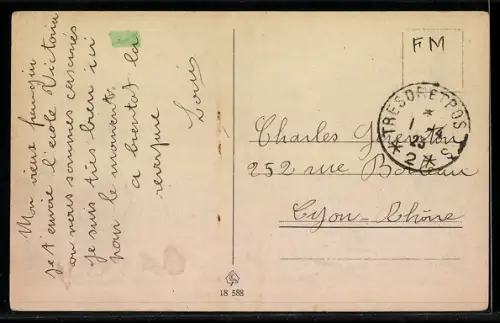 Mon vieux frangin
je t'envoie l'ecole Victoria
ou nous sommes casernés
je suis très bien ici
pour le moment.
a bientot la
revoyure
Louis
FM
TRESOR ET POSTES
* 2 *
Charles
252 rue
Lyon-Rhône
18 588